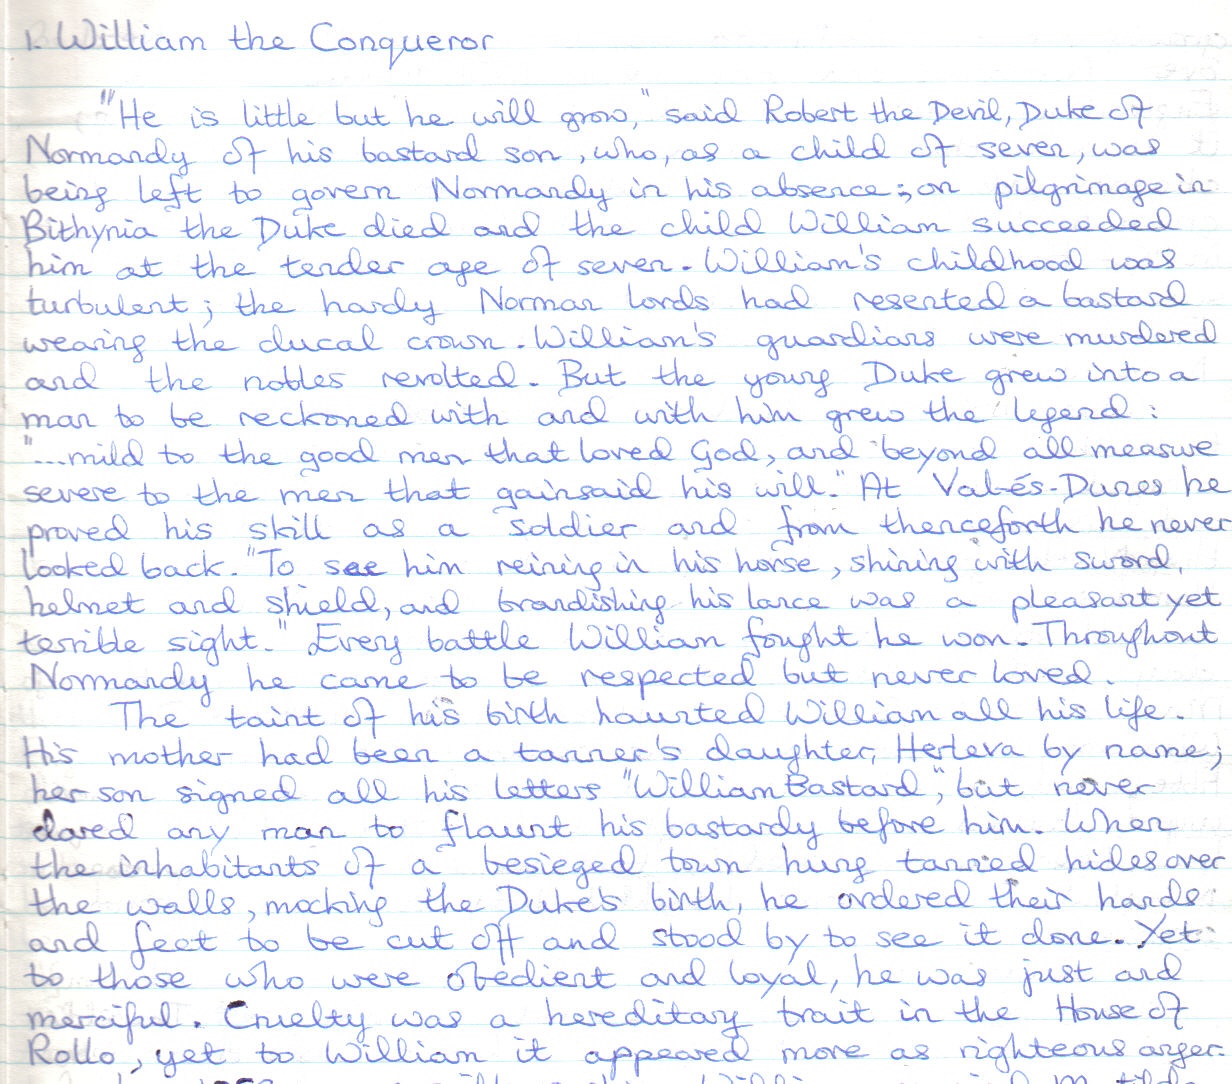 1. William the Conqueror
"He is little but he will grow," said Robert the Devil, Duke of
Normandy of his bastard son, who, as a child of seven, was
being left to govern Normandy in his absence; on pilgrimage in
Bithynia the Duke died and the child William succeeded
him at the tender age of seven. William's childhood was
turbulent; the hardy Norman lords had resented a bastard
wearing the ducal crown. William's guardians were murdered
and the nobles revolted. But the young Duke grew into a
man to be reckoned with and with him grew the legend:
"...mild to the good men that loved God, and beyond all measure
severe to the men that gainsaid his will." At Val-és-Dunes he
proved his skill as a soldier and from thenceforth he never
looked back. "To see him reining in his horse, shining with sword,
helmet and shield, and brandishing his lance was a pleasant yet
terrible sight." Every battle William fought he won. Throughout
Normandy he came to be respected but never loved.
The taint of his birth haunted William all his life.
His mother had been a tanner's daughter, Herleva by name;
her son signed all his letters "William Bastard", but never
dared any man to flaunt his bastardy before him. When
the inhabitants of a besieged town hung tanned hides over
the walls, mocking the Duke's birth, he ordered their hands
and feet to be cut off and stood by to see it done. Yet
to those who were obedient and loyal, he was just and
merciful. Cruelty was a hereditary trait in the House of
Rollo, yet to William it appeared more as righteous anger.